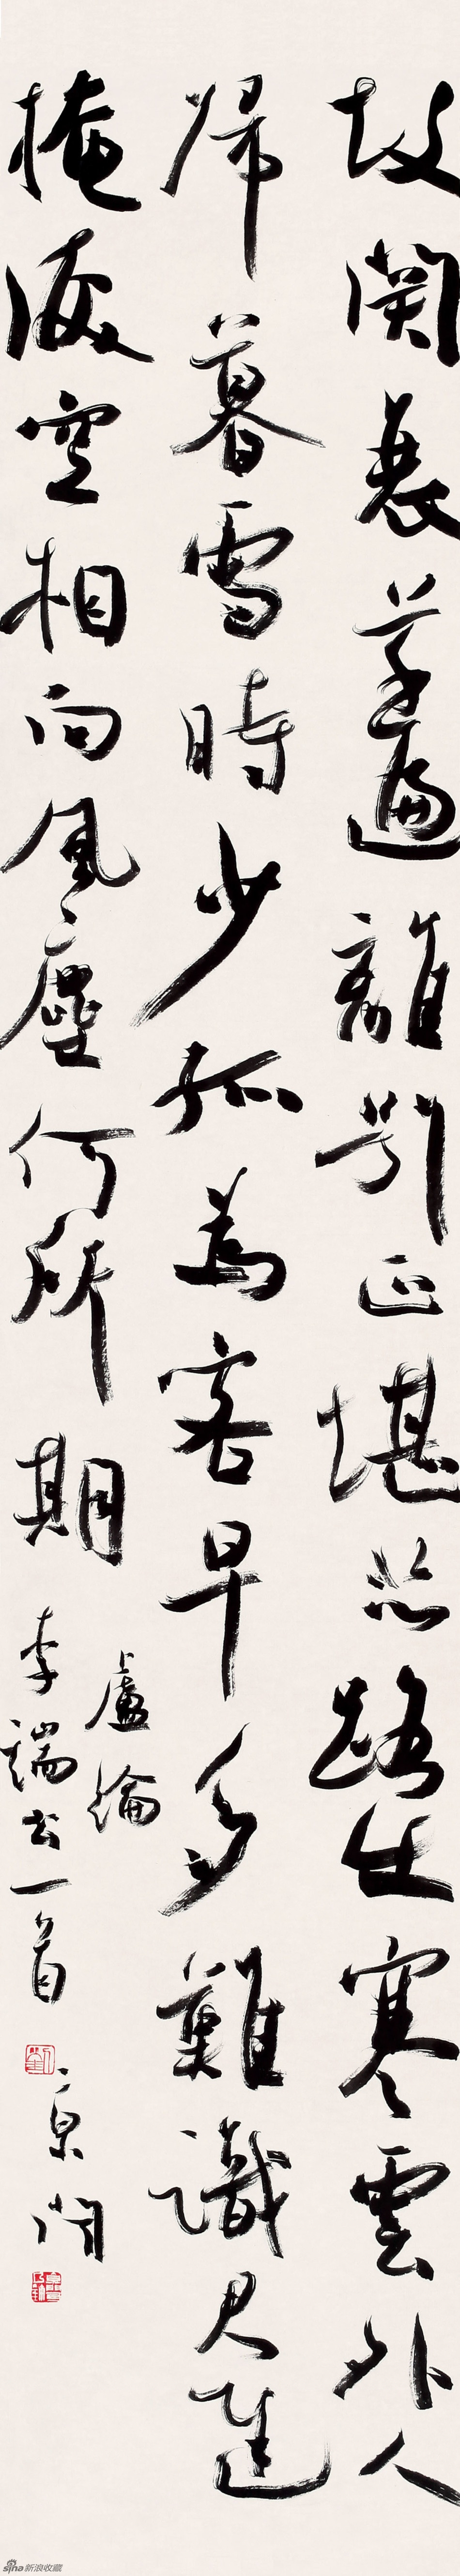 故關衰草遍離別正堪悲路出寒雲外人
歸暮雪時少孤為客早多難識君遲
掩淚空相向風塵何所期
盧綸
李端公一首 京聞
sina新浪收藏